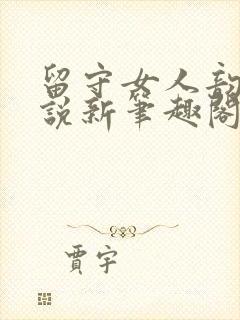 留守女人韵
说新笔趣阁
贾宇